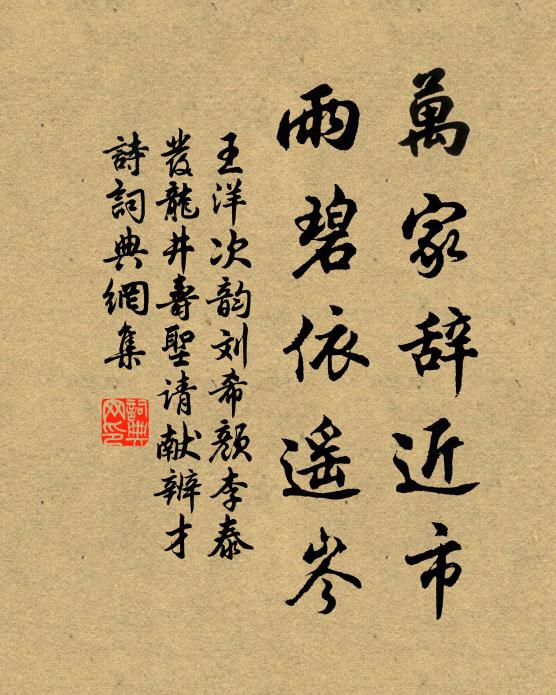 萬家辞近市
雨碧依遥岑
王洋次韵刘希颜李泰
发龍井壽聖请献辨才
詩詞典網集
詞典网印